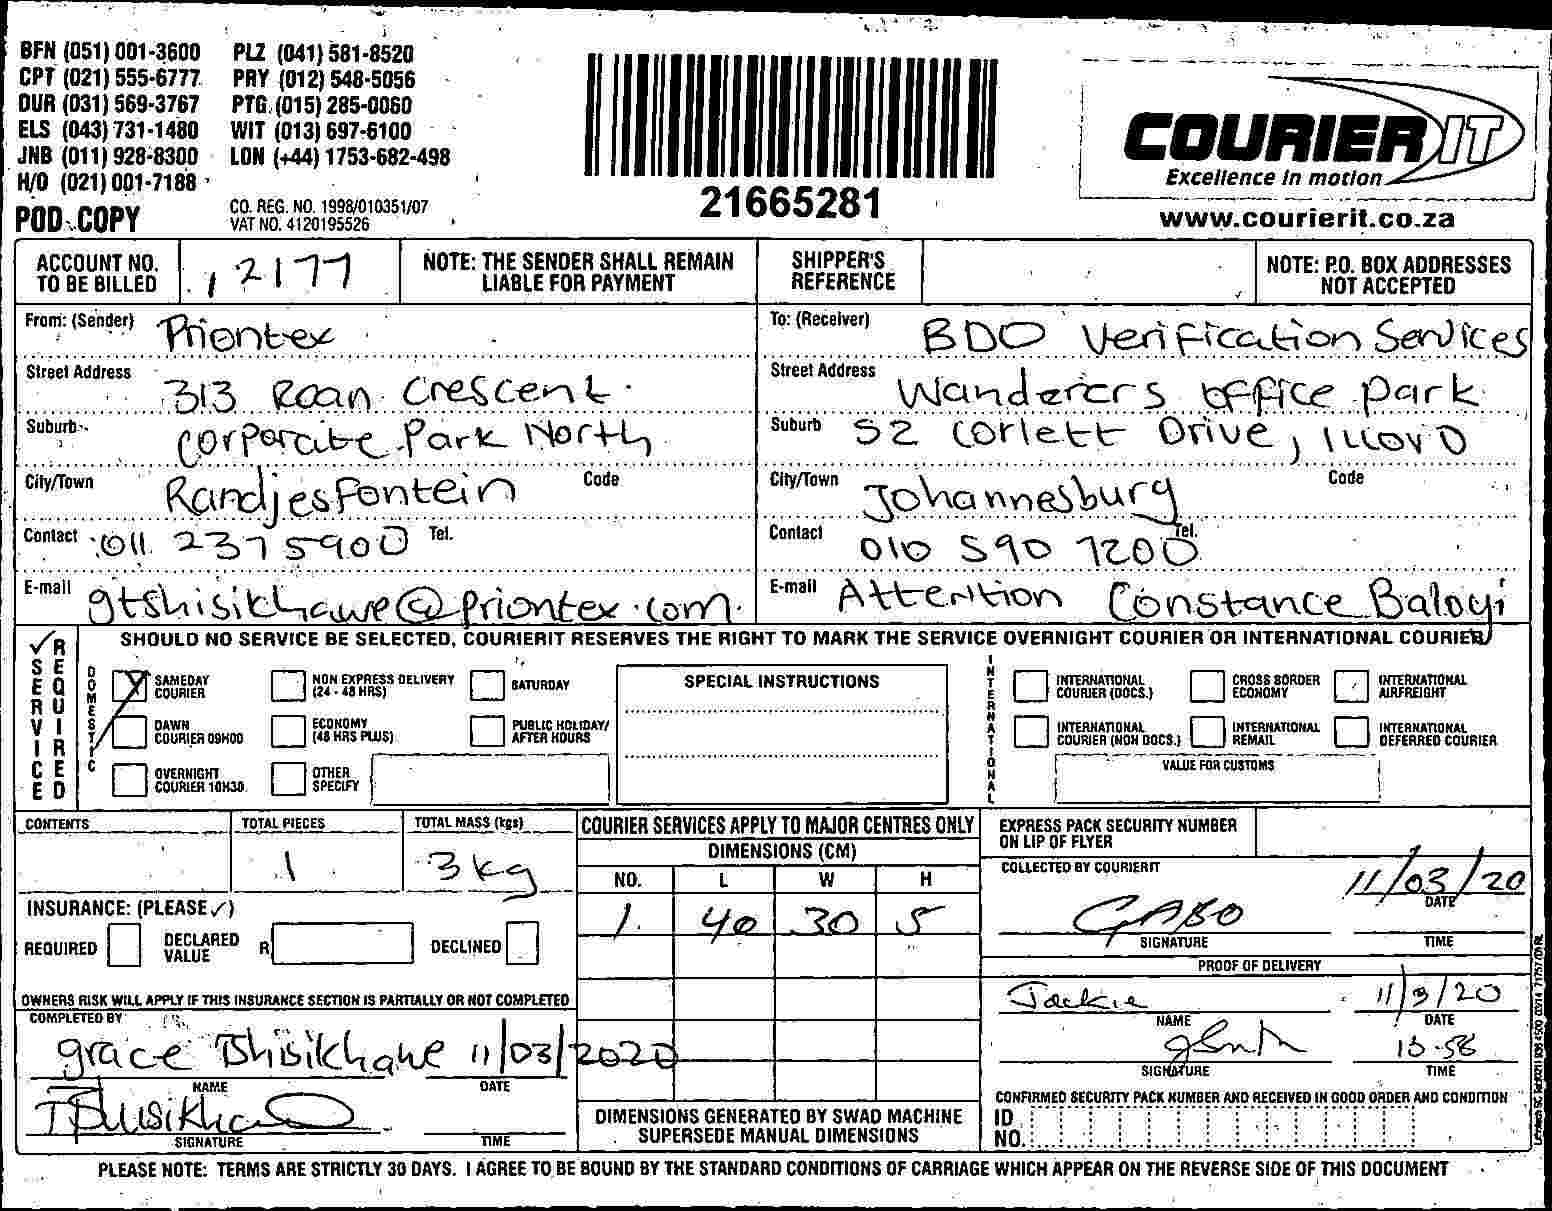 BFN (051) 001-3600 PLZ (041) 581-8520
CPT (021) 555-6777 PRY (012) 548-5056
DUR (031) 569-3767 PTG (015) 285-0060
ELS (043) 731-1480 WIT (013) 697-6100
JNB (011) 928-8300 LON (+44) 1753-682-498
H/O (021) 001-7188
POD COPY
CO. REG. NO. 1998/010351/07
VAT NO. 4120195526
21665281
COURIER IT
Excellence in motion
www.courierit.co.za
ACCOUNT NO. TO BE BILLED 12177
NOTE: THE SENDER SHALL REMAIN LIABLE FOR PAYMENT
SHIPPER'S REFERENCE
NOTE: P.O. BOX ADDRESSES NOT ACCEPTED
From: (Sender) Priontex
Street Address 313 Roan Crescent
Suburb Corporate Park North
City/Town Randjesfontein Code
Contact 011 237 5900 Tel.
E-mail gtshisikhawe@priontex.com
To: (Receiver) BDO Verification Services
Street Address Wanderers office park
Suburb 52 Corlett Drive, Illovo
City/Town Johannesburg Code
Contact 010 590 7200 Tel.
E-mail Attention Constance Baloyi
SERVICE REQUIRED
SHOULD NO SERVICE BE SELECTED, COURIERIT RESERVES THE RIGHT TO MARK THE SERVICE OVERNIGHT COURIER OR INTERNATIONAL COURIER
DOMESTIC
SAMEDAY COURIER
NON EXPRESS DELIVERY (24 - 48 HRS)
SATURDAY
DAWN COURIER 09H00
ECONOMY (48 HRS PLUS)
PUBLIC HOLIDAY/ AFTER HOURS
OVERNIGHT COURIER 10H30
OTHER SPECIFY
SPECIAL INSTRUCTIONS
INTERNATIONAL
INTERNATIONAL COURIER (DOCS.)
CROSS BORDER ECONOMY
INTERNATIONAL AIRFREIGHT
INTERNATIONAL COURIER (NON DOCS.)
INTERNATIONAL REMAIL
INTERNATIONAL DEFERRED COURIER
VALUE FOR CUSTOMS
CONTENTS
TOTAL PIECES 1
TOTAL MASS (kgs) 3kg
INSURANCE: (PLEASE ✓)
REQUIRED
DECLARED VALUE R
DECLINED
OWNERS RISK WILL APPLY IF THIS INSURANCE SECTION IS PARTIALLY OR NOT COMPLETED
COMPLETED BY
grace Tshisikhawe 11/03/2020
NAME DATE
SIGNATURE TIME
COURIER SERVICES APPLY TO MAJOR CENTRES ONLY
DIMENSIONS (CM)
NO. L W H
1 40 30 5
DIMENSIONS GENERATED BY SWAD MACHINE SUPERSEDE MANUAL DIMENSIONS
EXPRESS PACK SECURITY NUMBER ON LIP OF FLYER
COLLECTED BY COURIERIT
11/03/20
DATE
GABO
SIGNATURE TIME
PROOF OF DELIVERY
Jackie 11/3/20
NAME DATE
SIGNATURE TIME
CONFIRMED SECURITY PACK NUMBER AND RECEIVED IN GOOD ORDER AND CONDITION
ID NO.
PLEASE NOTE: TERMS ARE STRICTLY 30 DAYS. I AGREE TO BE BOUND BY THE STANDARD CONDITIONS OF CARRIAGE WHICH APPEAR ON THE REVERSE SIDE OF THIS DOCUMENT